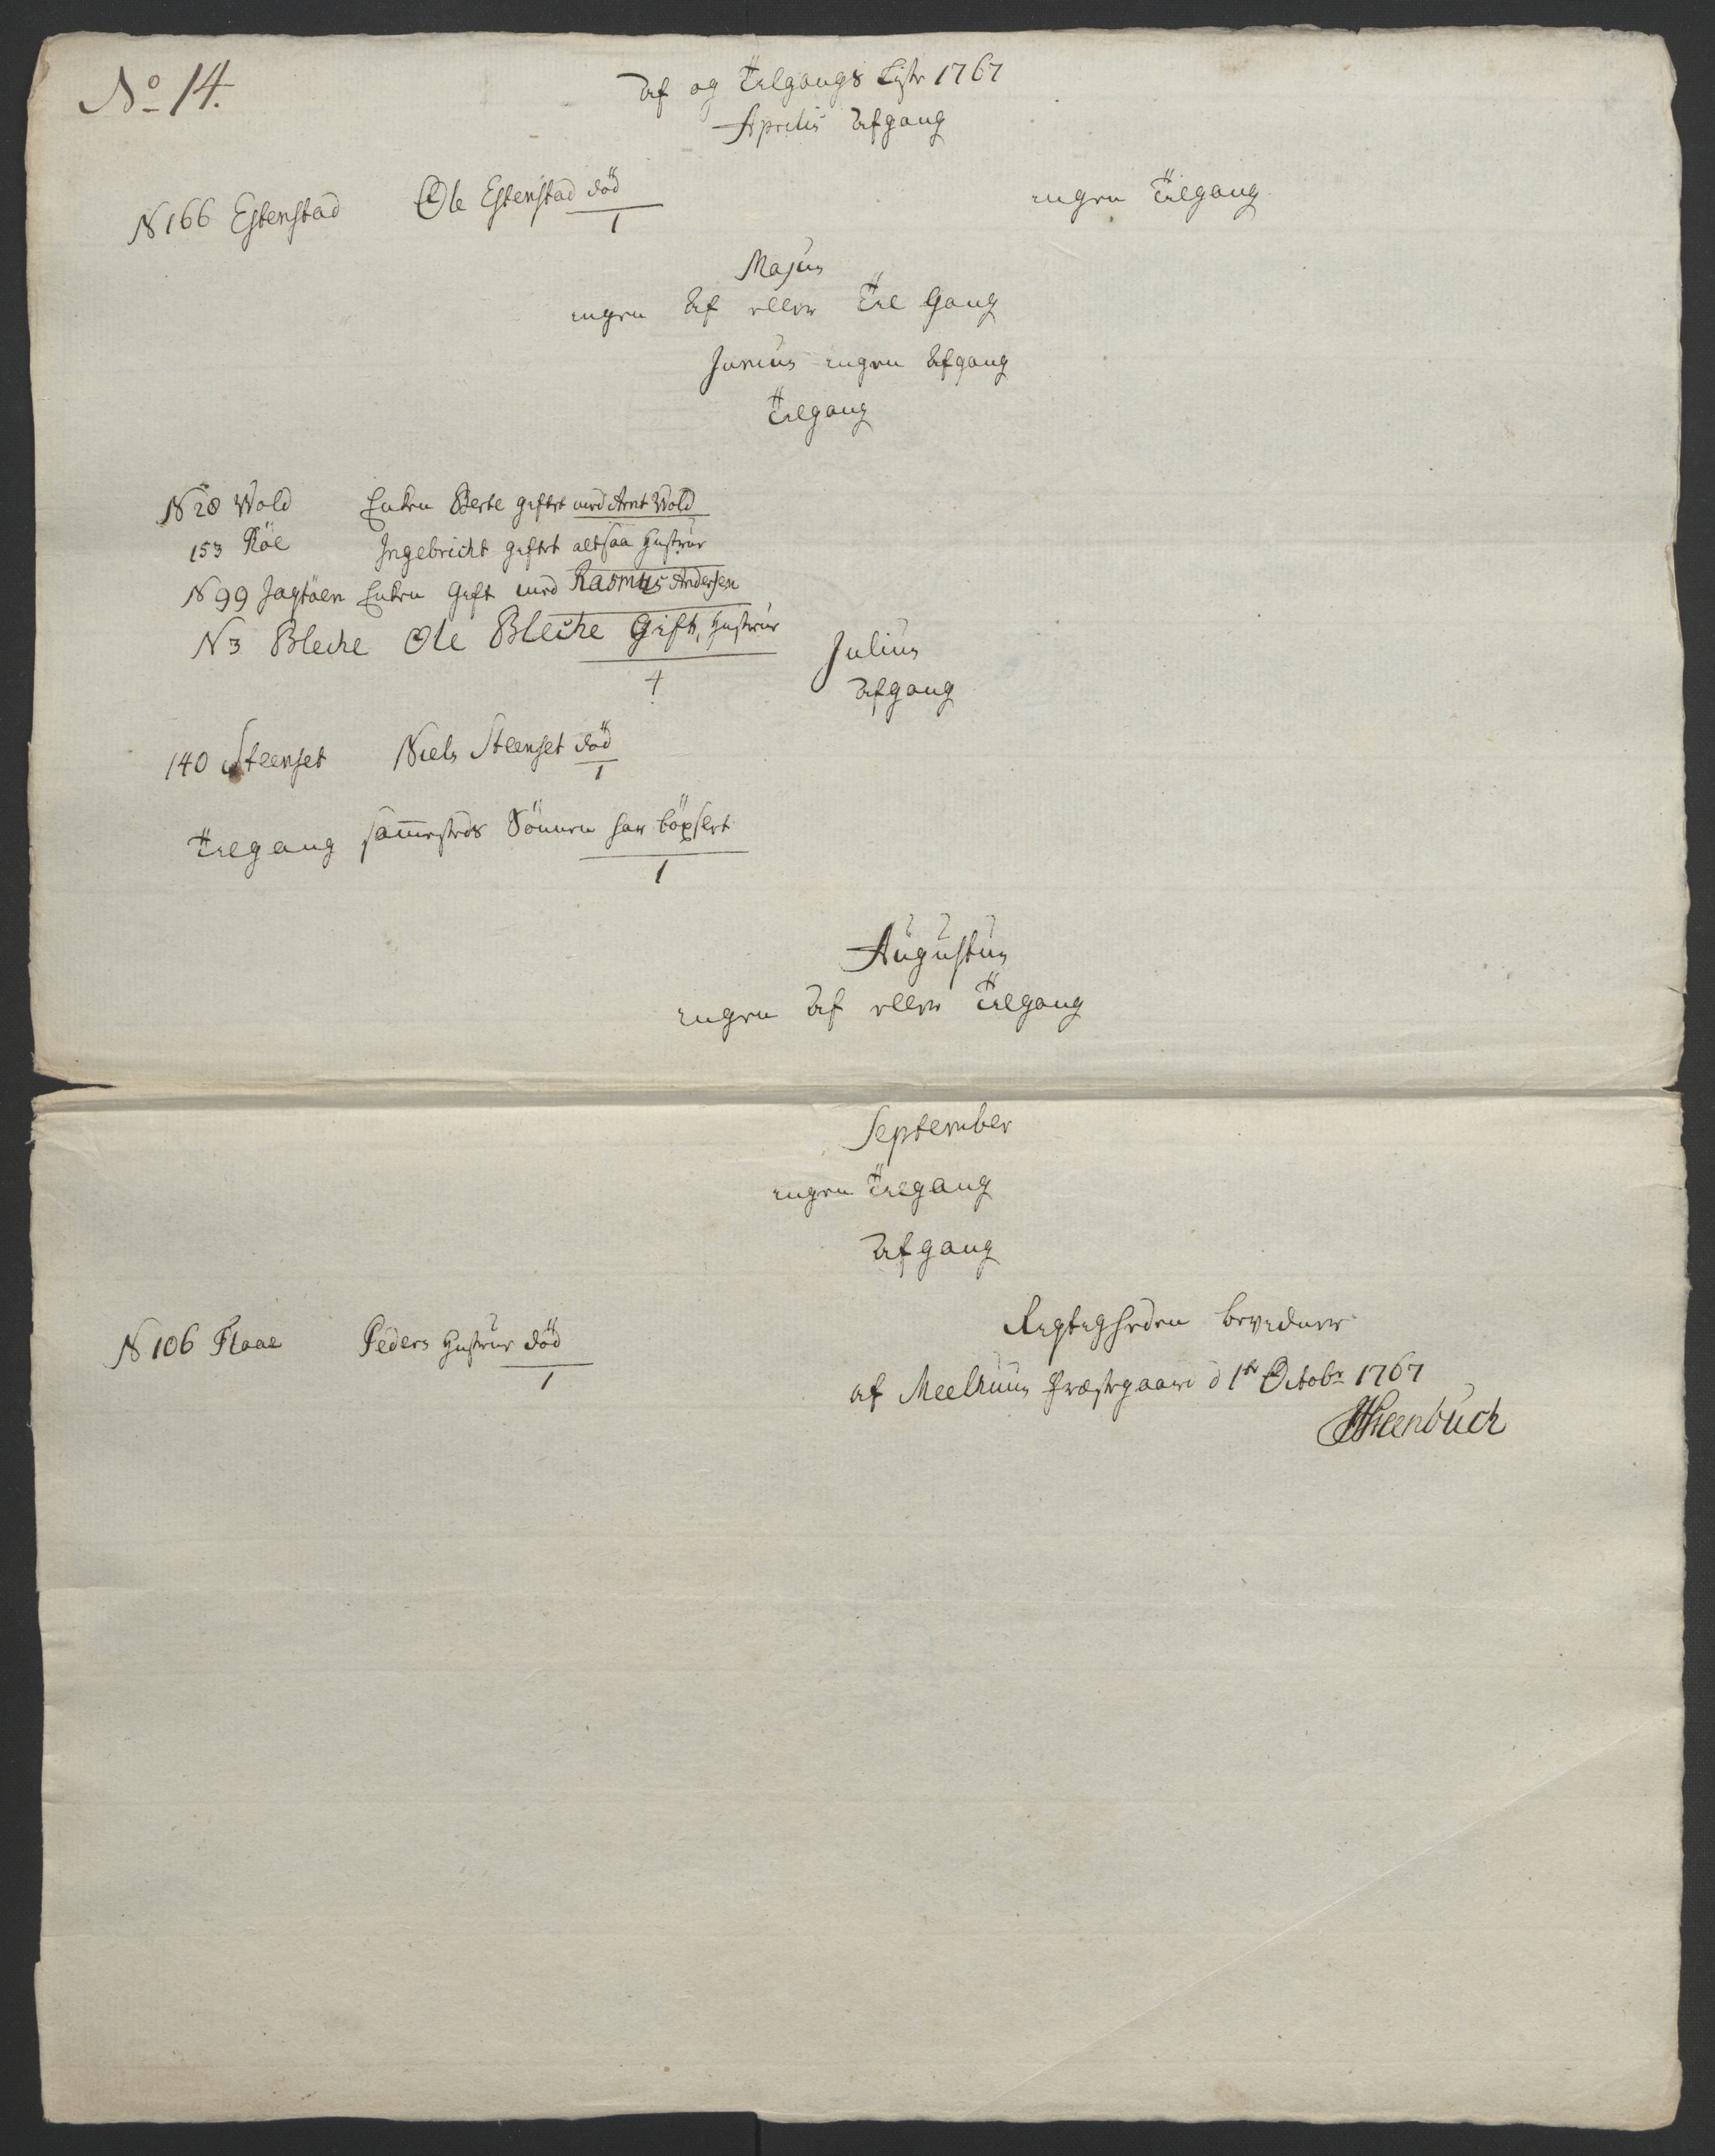 No 14.
Af og Tilgangs Liste 1767
Aprilis Afgang
N 166 Estenstad Ole Estenstad död
1
ingen Tilgang
Majus
ingen Af eller Til Gang
Junius ingen Afgang
Tilgang
N 28 Wold Enken Berte giftet med Arnt Wold
153 Röe Ingebricht giftet altsaa Hustrue
N 99 Jagtöen Enken Gift med Rasmus Andersen
N 3 Bleche Ole Bleche Gift, Hustrue
4
Julius
Afgang
140 Steenset Niels Steenset död
1
Tilgang sammesteds Sönnen har böxlet
1
Augustus
ingen Af eller Tilgang
September
ingen Tilgang
Afgang
N 106 Flaae Peders Hustrue död
1
Rigtigheden bevidner
af Meelhuus Præstegaard d 1te Octobr 1767
Steenbuch